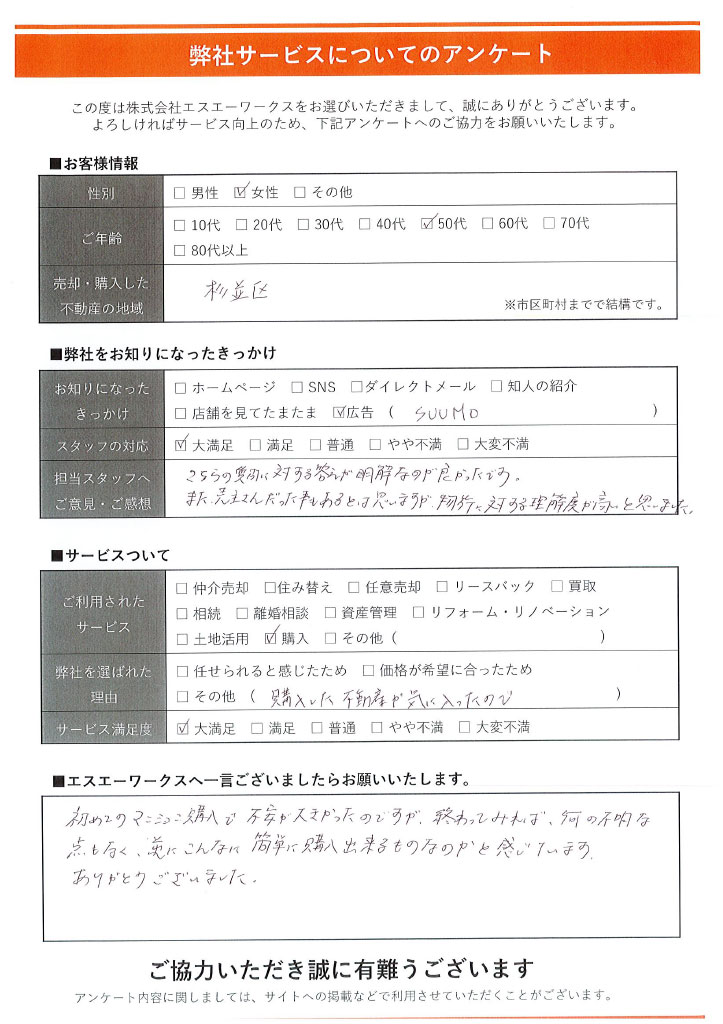 弊社サービスについてのアンケート
この度は株式会社エスエーワークスをお選びいただきまして、誠にありがとうございます。
よろしければサービス向上のため、下記アンケートへのご協力をお願いいたします。
■お客様情報
性別 □ 男性 ☑ 女性 □ その他
ご年齢 □ 10代 □ 20代 □ 30代 □ 40代 ☑ 50代 □ 60代 □ 70代
□ 80代以上
売却・購入した
不動産の地域
杉並区
※市区町村までで結構です。
■弊社をお知りになったきっかけ
お知りになった
きっかけ
□ ホームページ □ SNS □ダイレクトメール □ 知人の紹介
□ 店舗を見てたまたま ☑広告 ( SUUMO )
スタッフの対応 ☑ 大満足 □ 満足 □ 普通 □ やや不満 □ 大変不満
担当スタッフへ
ご意見・ご感想
こちらの質問に対する答えが明解なのが良かったです。
また、売主さんだった事もあるとは思いますが、物件に対する理解度が高いと思いました。
■サービスついて
ご利用された
サービス
□ 仲介売却 □住み替え □ 任意売却 □ リースバック □ 買取
□ 相続 □ 離婚相談 □ 資産管理 □ リフォーム・リノベーション
□ 土地活用 ☑ 購入 □ その他 ( )
弊社を選ばれた
理由
□ 任せられると感じたため □ 価格が希望に合ったため
□ その他 ( 購入した不動産が気に入ったので )
サービス満足度 ☑ 大満足 □ 満足 □ 普通 □ やや不満 □ 大変不満
■エスエーワークスへ一言ございましたらお願いいたします。
初めてのマンション購入で不安が大きかったのですが、終わってみれば、何の不明な
点もなく、逆にこんなに簡単に購入出来るものなのかと感じています。
ありがとうございました。
ご協力いただき誠に有難うございます
アンケート内容に関しましては、サイトへの掲載などで利用させていただくことがございます。